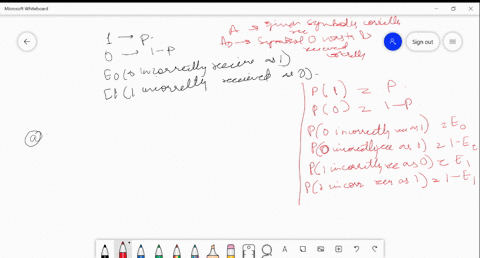 Microsoft Whiteboard
Sign out
1 → P.
0 → 1-P
E0 (0 incorrectly receive as 1)
E1 (1 incorrectly received as 0).
A → given symbol correctly rec
A0 → Symbol 0 was received
(a)
P(1) = P.
P(0) = 1-P
P(0 incorrectly rec as 1) = E0
P(0 incorrectly rec as 1) = 1-E
P(1 incorrectly rec as 0) = E1
P(1 incorr rec as 1) = 1-E1